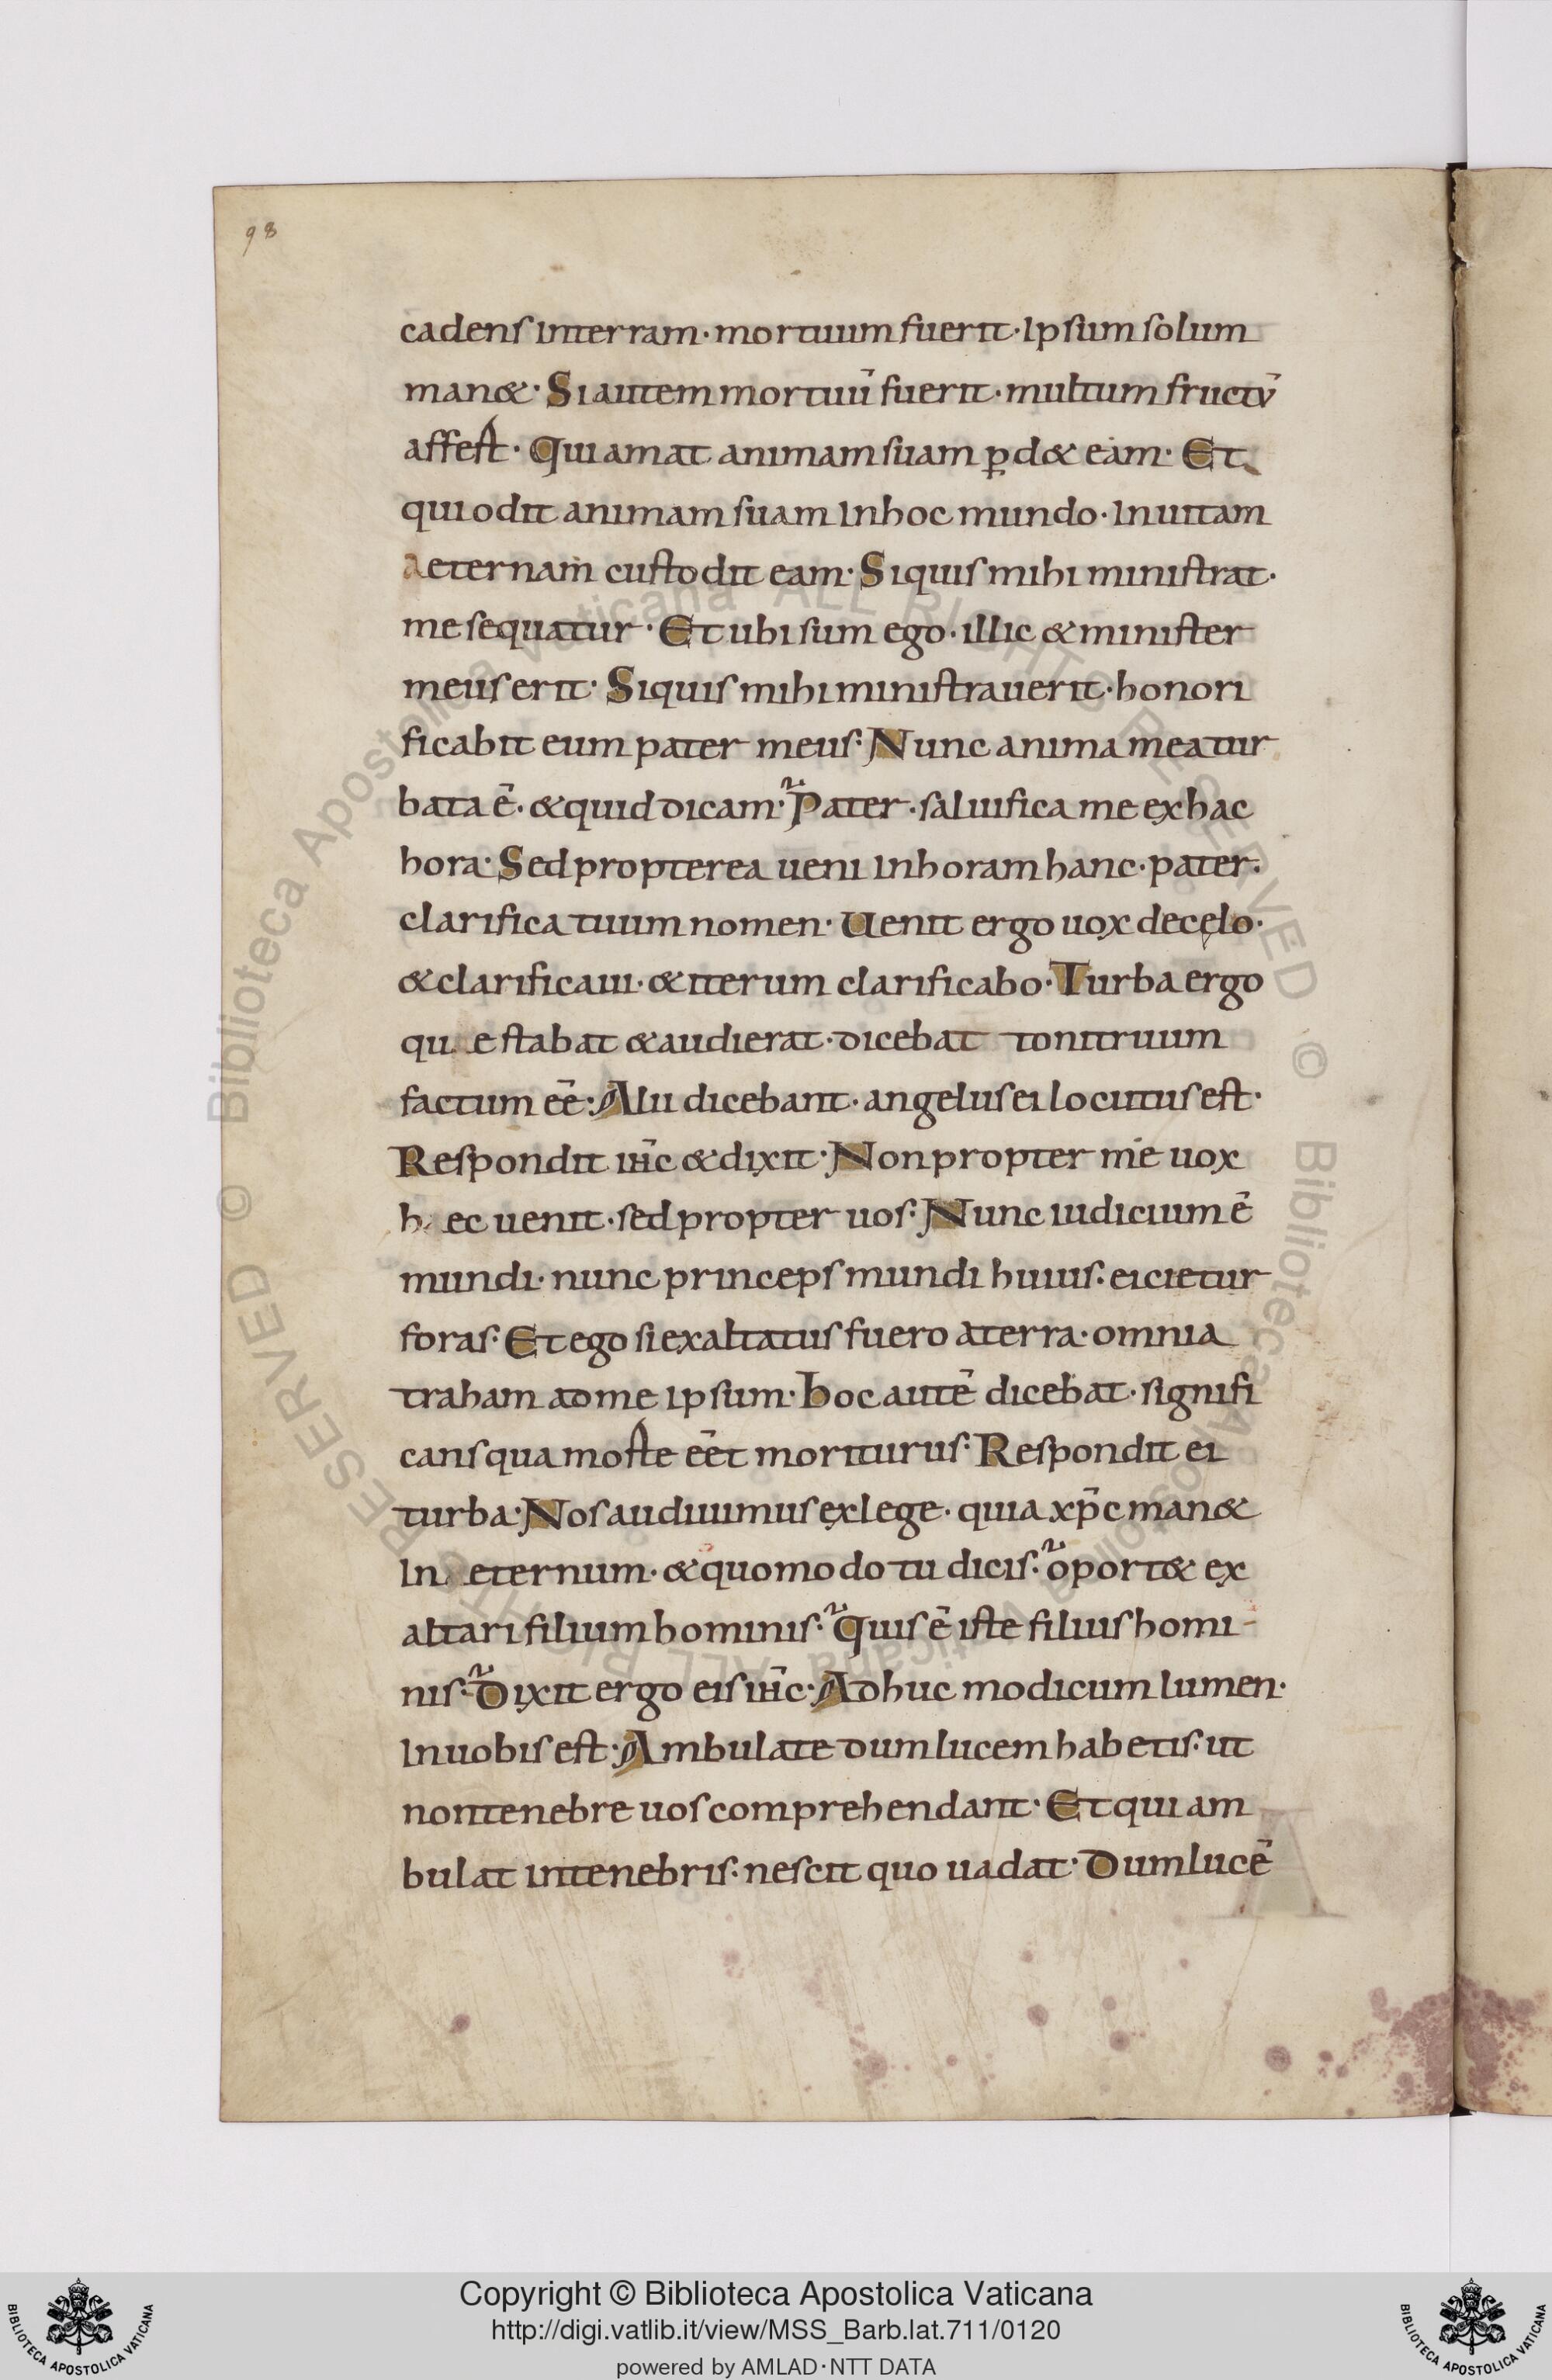 98
cadens interram· mortuum fuerit· Ipsum solum
man&· Si autem mortuū fuerit· multum fructū
affert· Qui amat animam suam p̱d& eam· Et
qui odit animam suam In hoc mundo· In uitam
aeternam custodit eam· Siquis mihi ministrat·
me sequatur· Et ubi sum ego· illic & minister
meus erit· Siquis mihi ministrauerit· honori
ficabit eum pater meus· Nunc anima mea tur
bata ē· & quid dicam· Pater· saluifica me ex hac
hora· Sed propterea ueni In horam hanc· pater·
clarifica tuum nomen· Uenit ergo uox decęlo·
& clarificaui· & iterum clarificabo· Turba ergo
qu e stabat & audierat· dicebat tonitruum
factum eē· Alii dicebant· angelus ei locutus est·
Respondit ihc̄ & dixit· Non propter me uox
h ec uenit· sed propter uos· Nunc iudicium ē
mundi· nunc princeps mundi huius· eicietur
foras· Et ego si exaltatus fuero a terra· omnia
traham ad me Ipsum· hoc autē dicebat· signifi
cans qua morte eēt moriturus· Respondit ei
turba· Nos audiuimus ex lege· quia xp̄c man&
In eternum· & quomodo tu dicis· oport& ex
altari filium hominis· Quis ē iste filius homi-
nis· Dixit ergo eis ihc̄· Adhuc modicum lumen·
In uobis est· Ambulate dum lucem habetis· ut
non tenebre uos comprehendant· Et qui am
bulat in tenebris· nescit quo uadat· Dum lucē
© Biblioteca Apostolica Vaticana ALL RIGHTS RESERVED
© Biblioteca Apostolica Vaticana ALL RIGHTS RESERVED
Copyright © Biblioteca Apostolica Vaticana
http://digi.vatlib.it/view/MSS_Barb.lat.711/0120
powered by AMLAD·NTT DATA
BIBLIOTECA APOSTOLICA VATICANA
BIBLIOTECA APOSTOLICA VATICANA